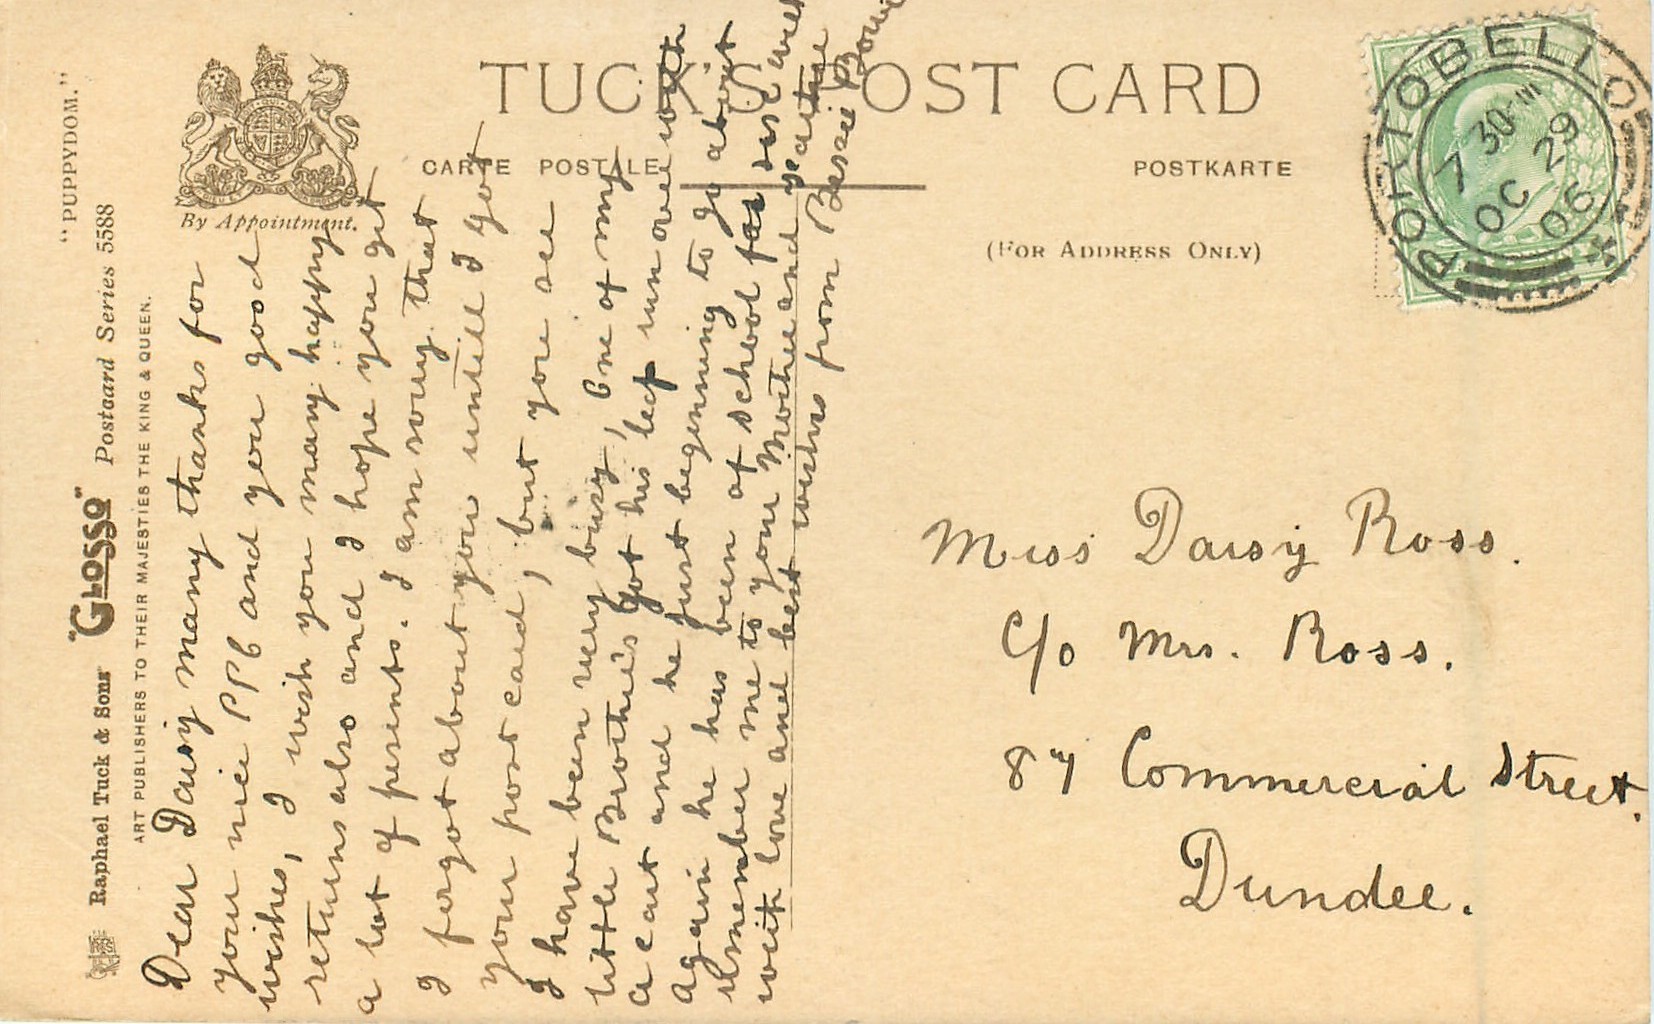 "PUPPYDOM."
Raphael Tuck & Sons' "GLOSSO" Postcard Series 5588
ART PUBLISHERS TO THEIR MAJESTIES THE KING & QUEEN.
By Appointment.
TUCK'S POST CARD
CARTE POSTALE
POSTKARTE
(FOR ADDRESS ONLY)
PORTOBELLO
7 30
OC 29
06
Dear Daisy many thanks for
your nice PPC and your good
wishes, I wish you many happy
returns also and I hope you get
a lot of presents. I am sorry that
I forgot about you untill I got
your post card, but you see
I have been very busy, One of my
little Brother's got his leg run over with
a cart and he just beginning to go about
again he has been of school for six weeks
remember me to your Mother and
with love and best wishes from Bessie
Miss Daisy Ross.
C/o Mrs. Ross.
87 Commercial Street.
Dundee.